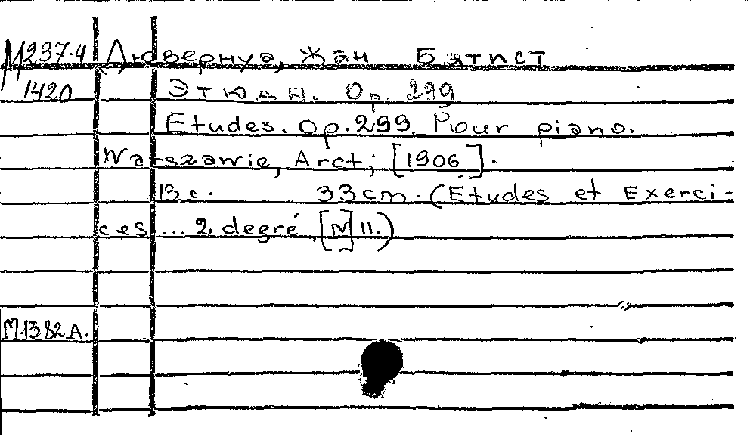 М237.4 Дювернуа, Жан Батист
1420 Этюды. Op. 299
Etudes. Op. 299. Pour piano.
Warszawie, Arct, [1906].
13 с. 33 cm. (Etudes et Exerci-
ces ... 2. degré [N 11.)
М.1382А.